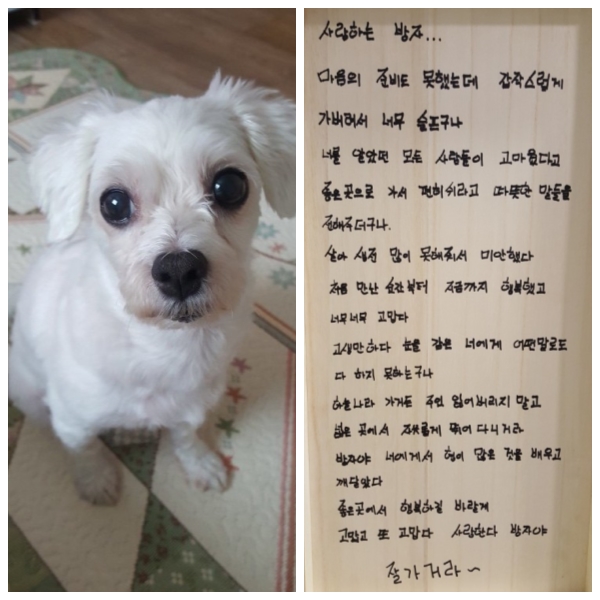 사랑하는 방자...
마음의 준비도 못했는데 갑작스럽게
가버려서 너무 슬프구나
너를 알았던 모든 사람들이 고마웠다고
좋은곳으로 가서 편히쉬라고 따뜻한 말들을
전해주더구나.
살아 생전 많이 못해줘서 미안했다
처음 만난 순간부터 지금까지 행복했고
너무너무 고맙다
고생만하다 눈을 감은 너에게 어떤말로도
다 하지 못하는구나
하늘나라 가거든 주인 잊어버리지 말고
넓은 곳에서 자유롭게 뛰어 다니거라
방자야 너에게서 형이 많은 것을 배우고
깨달았다
좋은곳에서 행복하길 바랄게
고맙고 또 고맙다 사랑한다 방자야
잘가거라~